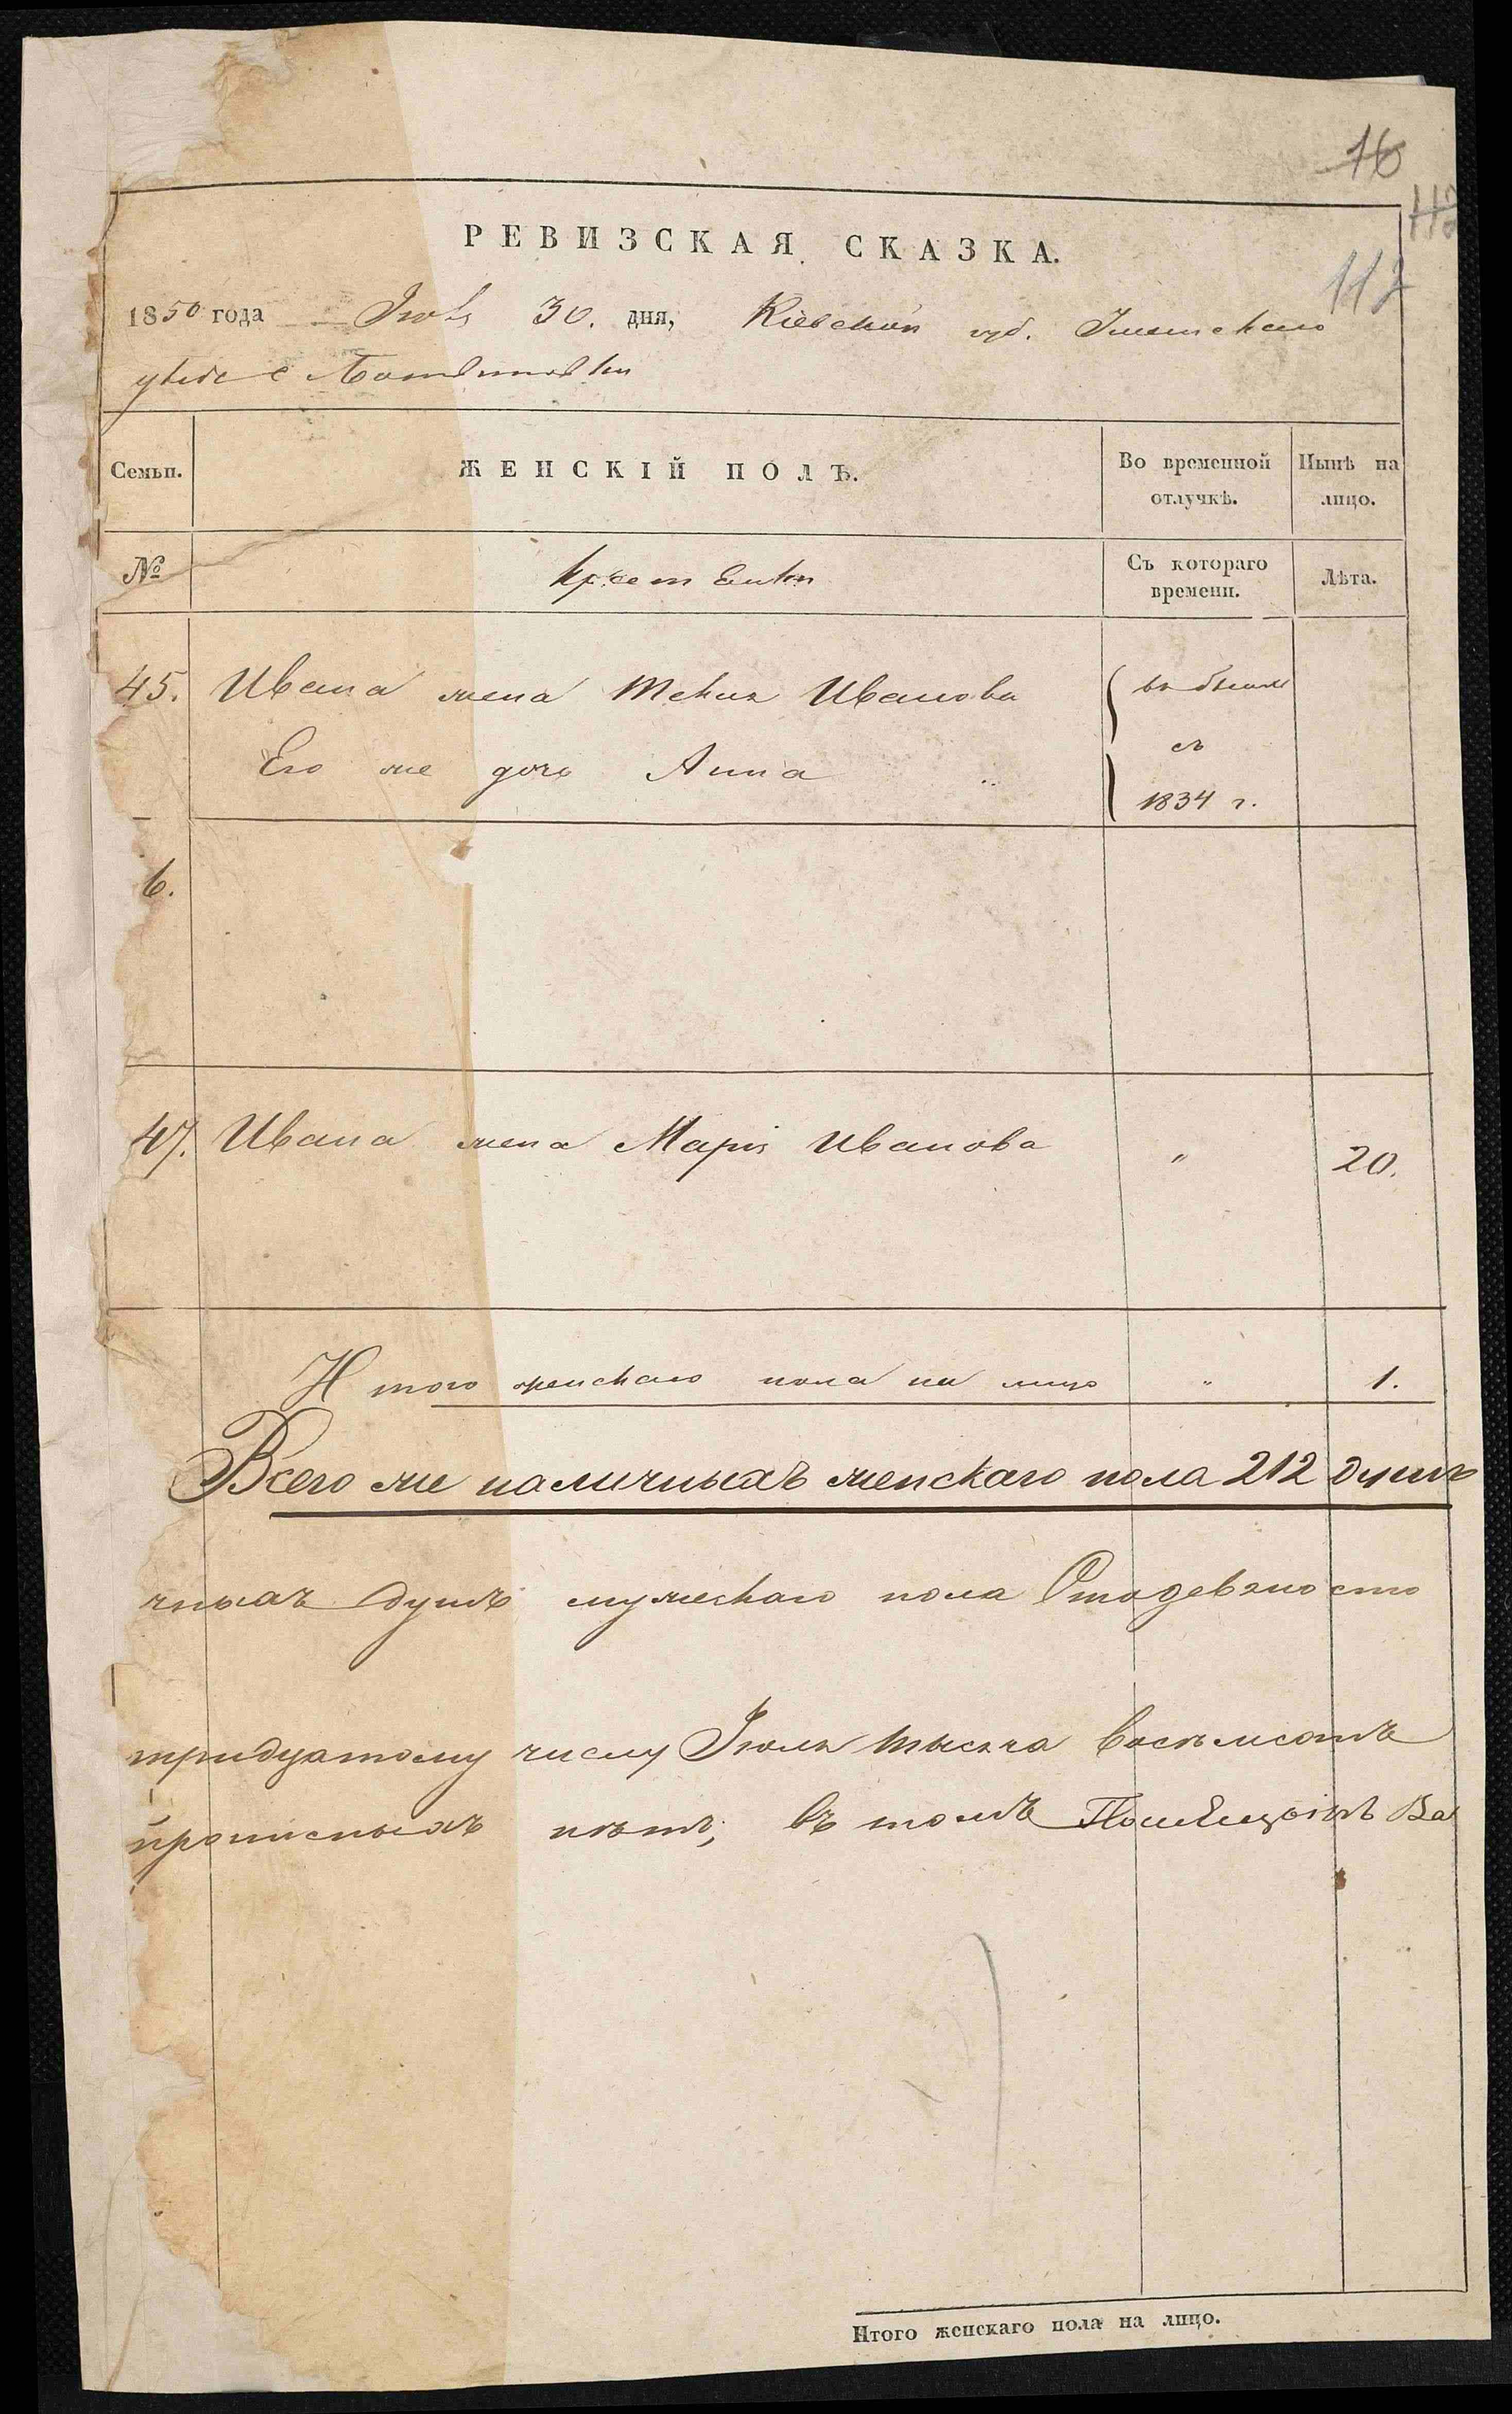 16
112
112
РЕВИЗСКАЯ СКАЗКА.
1850 года Іюля 30. дня, Кіевской губ. Уманскаго
уѣзда с
Семьи. ЖЕНСКІЙ ПОЛЪ. Во временной отлучкѣ. Нынѣ на лицо.
№ Крестьянки Съ котораго времени. Лѣта.
45. Ивана жена Текля Иванова въ бѣгахъ
Его же дочь Анна съ
1834 г.
6.
47. Ивана жена Марія Иванова " 20.
Итого женскаго пола на лицо " 1.
Всего же наличныхъ женскаго пола 212 душъ
чныхъ душъ мужескаго пола Стодевяносто
тридцатому числу Іюля тысяча восемьсотъ
прописныхъ нѣтъ; въ томъ Помѣщикъ Ва
Итого женскаго пола на лицо.